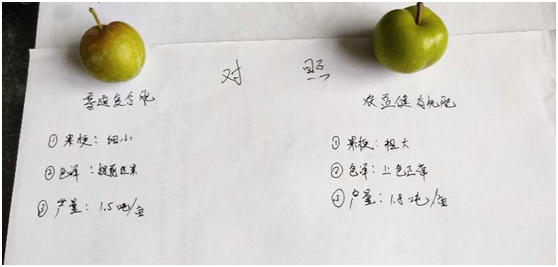 对照
普通复合肥
农益健有机肥
①果梗：细小
②色泽：提前
③产量：1.5吨/亩
①果梗：粗大
②色泽：上色正常
③产量：1.8吨/亩